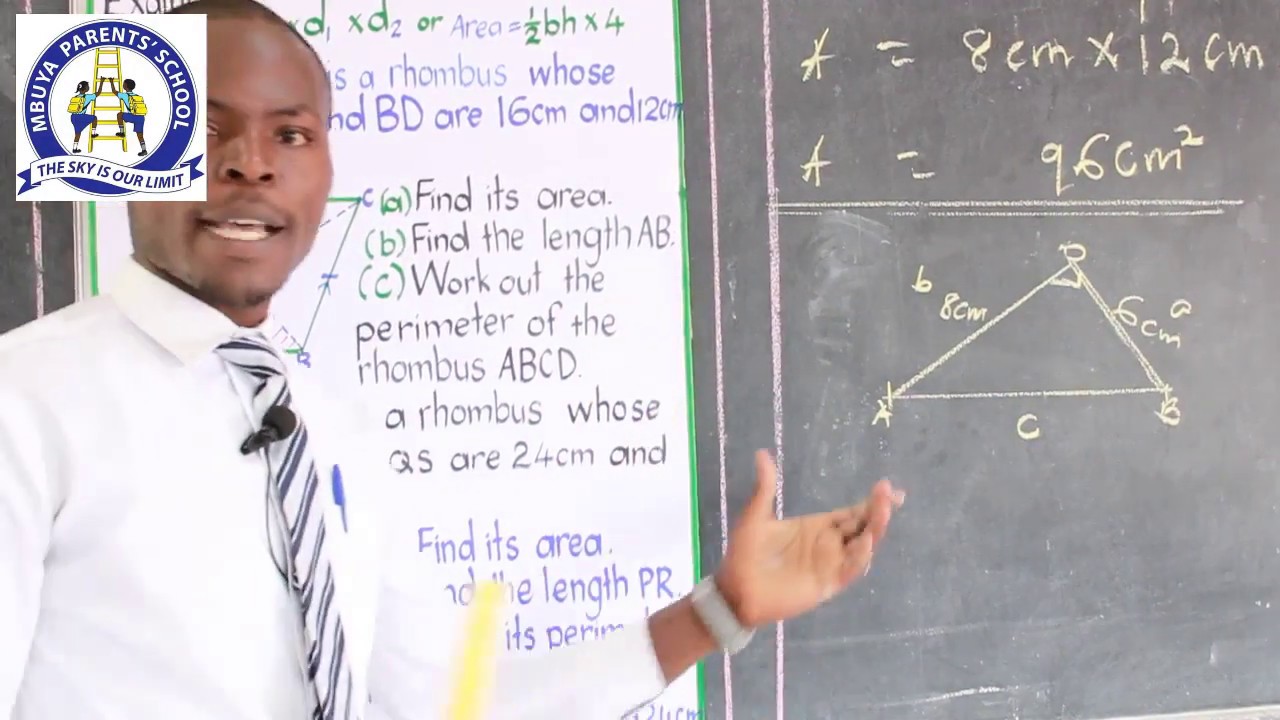 MBUYA PARENTS' SCHOOL
THE SKY IS OUR LIMIT
d₁ x d₂ or Area = ½bh x 4
is a rhombus whose
nd BD are 16cm and 12cm
C (a) Find its area.
(b) Find the length AB.
(c) Work out the
perimeter of the
rhombus ABCD.
a rhombus whose
QS are 24cm and
Find its area.
the length PR.
its perim
24cm
A = 8cm x 12cm
A = 96cm²
O
b 8cm
6cm a
A B
C